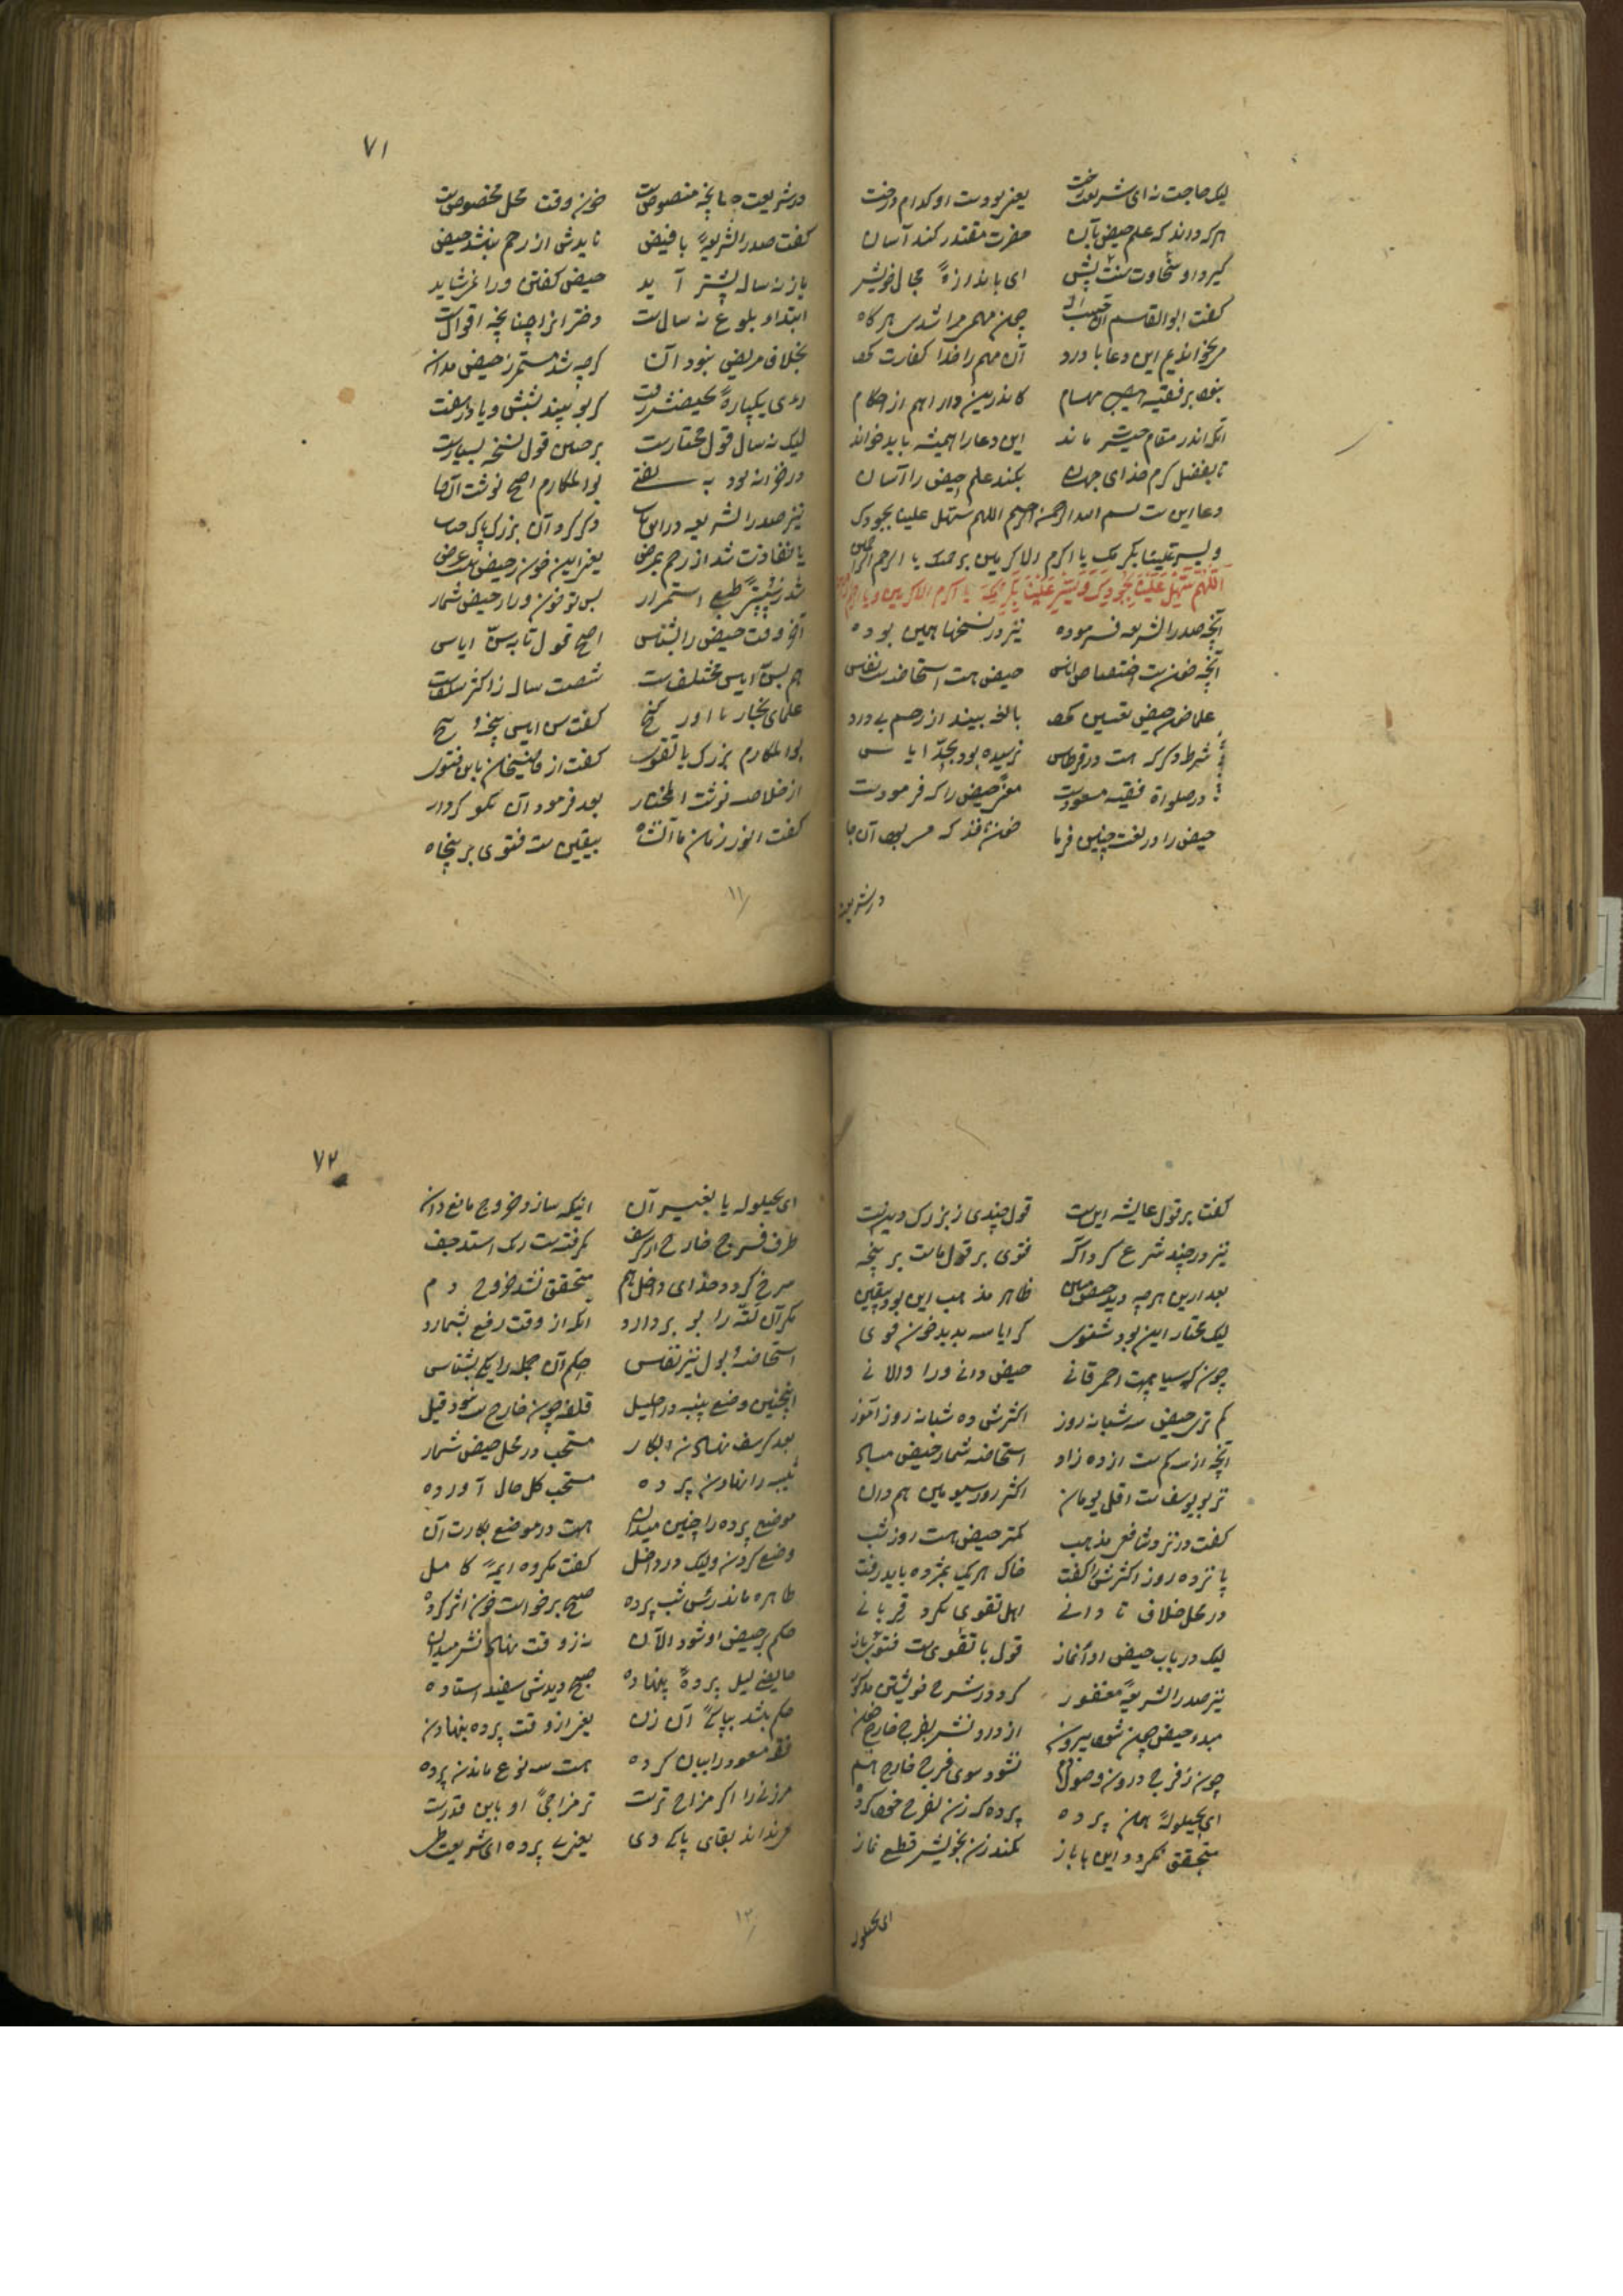 لیک حاجت نه ای شریعت رخت یعنی بودست او کدام درخت
هر که داند که علم حیض بآن حضرت مقتدر کند آسان
گیرد او سخاوت سنت پیش ای باندازهٔ مجال خویش
گفت ابوالقاسم آن چون مهم مرا شدی هر گاه
میخوانم این دعا با درد آن مهم را خدا کفایت کرد
کاندرین دار اهم از احکام
آنکه اندر مقام حیث ماند این دعا را همیشه باید خواند
تا بفضل کرم خدای جهان بکند علم حیض را آسان
دعا این ست بسم الله الرحمن الرحیم اللهم سهل علینا بجودک
و یسر علینا بکرمک یا اکرم الاکرمین برحمتک یا ارحم الراحمین
اللهم سهل علینا بجودک و یسر علینا بکرمک یا اکرم الاکرمین و یا ارحم
آنچه صدر الشریعه فرموده نیز در نسخها همین بوده
آنچه خونست اختصاص انسی حیض هست استحاضه ست نفسی
علما خون حیض تعیین کرد بالغه بیند از رحم بی درد
شرط دیگر که هست در قرطاس نرسیده بود بحد ایاس
در صلواة فقیه مسعودست معنی حیض را که فرمودست
حیض را در لغت چنین فرما خون نافذ که می بود آن جا
در شریعت
۷۱
در شریعت هر آنچه منصوص است خون وقت محل مخصوص است
گفت صدر الشریعهٔ با فیض نایدش از رحم نباشد حیض
باز نه ساله پیشتر آید حیض گفتن ورا نمی شاید
ابتداء بلوغ نه سال ست دختر انرا چنانچه اقوال ست
بخلاف مریض نبود آن گرچه شد مستمر ز حیض مدان
لیک نه سال قول مختارست بر همین قول نسخه بسیارست
در خزانه بود به بوالمکارم اصح نوشت آن جا
نیز صدر الشریعه در این باب ذکر کرد آن بزرگ پاک جناب
یعنی این خون ز حیض
شد ز طبع استمرار پس تو خون ورا ز حیض شمار
آخر وقت حیض را بشناس اصح قول تا به سن ایاس
هم بسن ایاس مختلف ست شصت ساله ز اکثر سلف ست
علمای بخارا اور گنج گفت سن ایاس پنجه و پنج
بوالمکارم بزرگ با تقوی گفت از قاضیخان باین فتوی
از خلاصه نوشت المختار بعد فرمود آن نکو کردار
گفت اندر زمان ما آن شاه بیقین ست فتوی بر پنجاه
۱۱
گفت بر قول عایشه این ست قول چندی ز بزرگ دین ست
نیز در چند شرع کرد آگه فتوی بر قول ماست بر پنجه
بعد ازین هر چه دید حیض مبین ظاهر مذهب این بود بیقین
لیک مختار این بود شنوی کر ایاسه بدید خون قوی
چون که سیاه هست احمر قانی حیض دانی ورا والا نی
کم ترین حیض سه شبانه روز اکثرش ده شبانه روز آموز
آنچه از سه کم ست از ده زاد استحاضه شمار حیض مباد
نزد بو یوسف ست اقل یومان اکثر روز سیومین هم دان
گفت در نزد شافعی مذهب کمتر حیض هست روز شب
پانزده روز اکثرش را گفت
در محل خلاف تا دانی اهل تقوی نکرد قربانی
لیک در باب حیض او آغاز قول با تقوی ست فتوی باز
نیز صدر الشریعهٔ مغفور کرد در شرح خویشتن مذکور
مبدء حیض چون شود بیرون از درون نشر بفرج خارج خون
چون ز فرج درون وصول دم نشود سوی فرج خارج هم
ای بحیلولهٔ همان پرده پرده که زن بفرج خود کرده
متحقق نگردد این با باز نکند زن بخویش قطع نماز
ای بحیلوله
۷۲
ای بحیلوله یا بغیر آن اینکه سازد خروج مانع دان
طرف فرج خارج از کرسف نگرفته ست رنگ استد جیف
سرخ گردد حذای داخل هم متحقق نشد خروج دم
مگر آن لته را بو بردارد آنکه از وقت رفع بشمارد
استحاضه و بول نیز نفس حکم آن جمله را یکی بشناس
اینچنین وضع پنبه در احلیل قلفه چون خارج ست شود قیل
بعد کرسف نهادن ابکار مستحب در محل حیض شمار
ثیبه را نهادن پرده مستحب کل حال آورده
موضع پرده را چنین میدان هست در موضع بکارت آن
وضع کردن ولیک در داخل گفت مکروه ایمهٔ کامل
طاهره ماند در شب پرده صبح برخواست خون اثر کرده
حکم بر حیض او شود الآن نه ز وقت نهادنش میدان
حایضی لیل پردهٔ بنهاده صبح دیدش سفید استاده
حکم باشد بپاکی آن زن یعنی از وقت پرده بنهادن
فقه مسعود را بیان کرده هست سه نوع ماندن پرده
مر زنی را اگر مزاج ترست تر مزاجی او باین قدرست
که نداند بقای پاکی دی یعنی بی پرده ای شریعت طی
۱۲